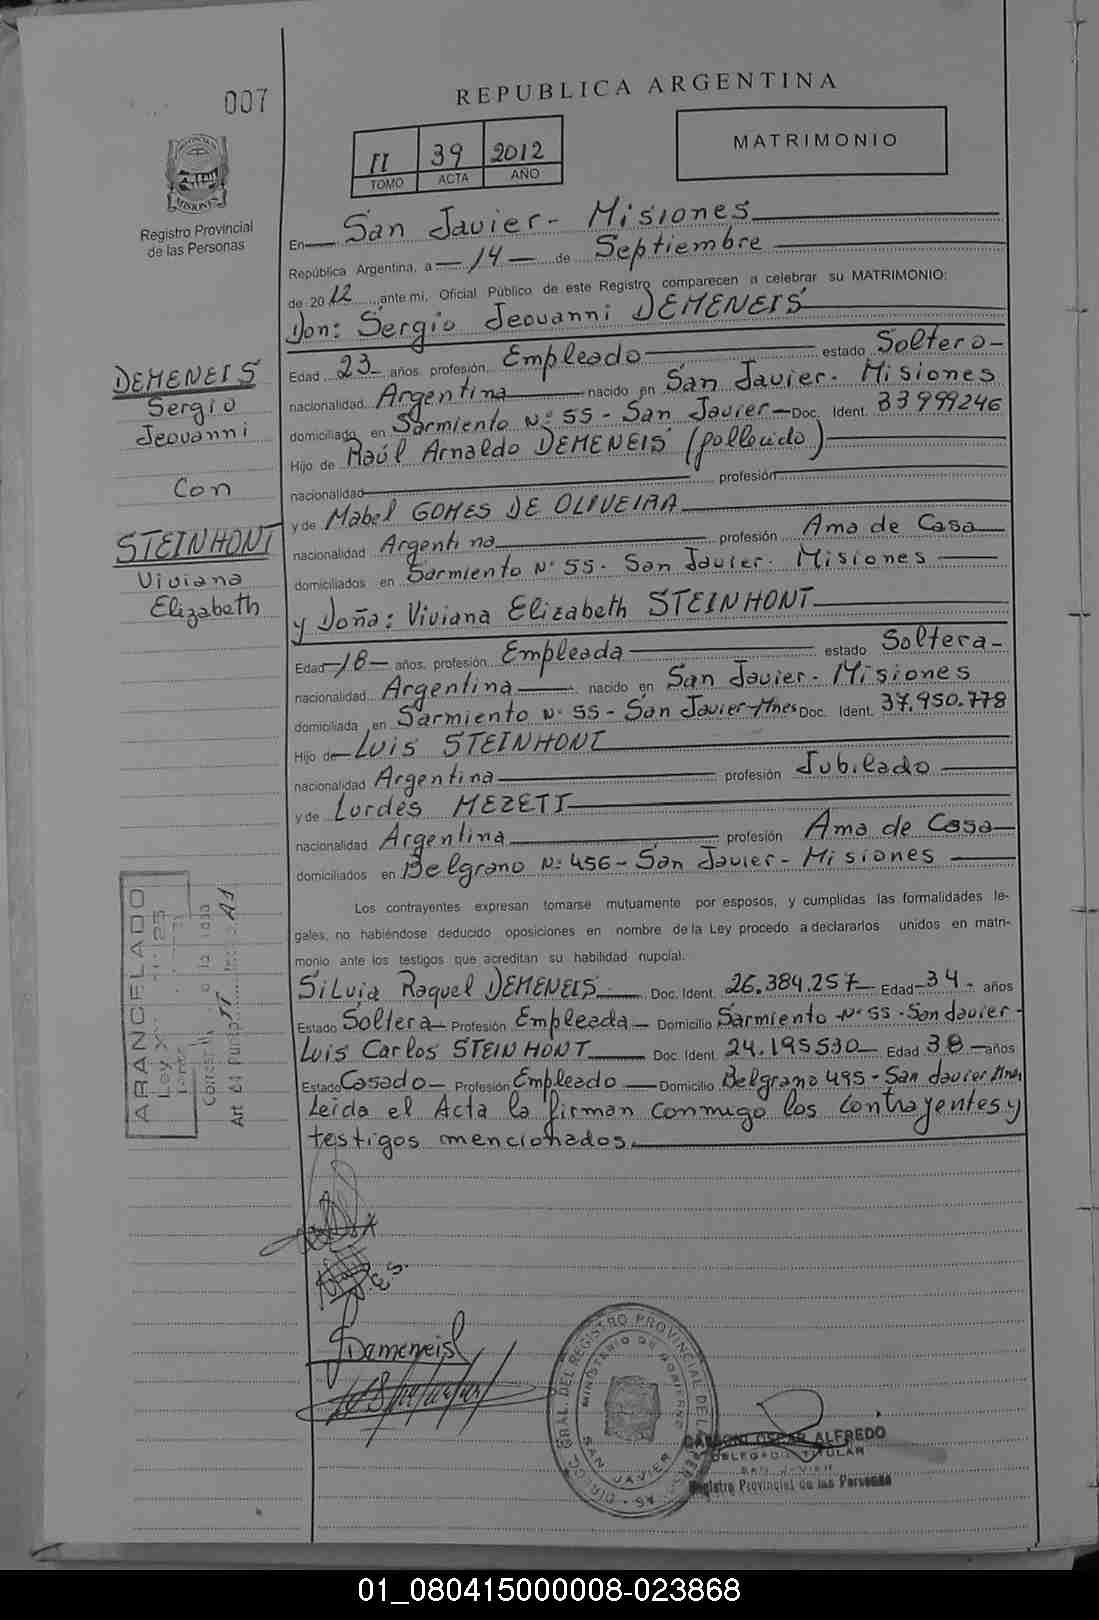 007
REPUBLICA ARGENTINA
II 39 2012
TOMO ACTA AÑO
MATRIMONIO
MISIONES
Registro Provincial
de las Personas
En San Javier - Misiones
República Argentina, a - 14 - de Septiembre
de 2012 ante mi, Oficial Público de este Registro comparecen a celebrar su MATRIMONIO:
Don: Sergio Jeovanni DEMENEIS
Edad 23- años, profesión Empleado estado Soltero-
nacionalidad Argentina nacido en San Javier - Misiones
domiciliado en Sarmiento Nº 55 - San Javier - Doc. Ident. 33999246
Hijo de Raúl Arnaldo DEMENEIS (fallecido)
nacionalidad profesión
y de Mabel GOMES DE OLIVEIRA
nacionalidad Argentina profesión Ama de Casa
domiciliados en Sarmiento Nº 55 - San Javier - Misiones
y Doña: Viviana Elizabeth STEINHONT
Edad -18- años, profesión Empleada estado Soltera-
nacionalidad Argentina nacido en San Javier - Misiones
domiciliada en Sarmiento Nº 55 - San Javier - Mnes Doc. Ident. 37.950.778
Hijo de Luis STEINHONT
nacionalidad Argentina profesión Jubilado
y de Lordes MEZETT
nacionalidad Argentina profesión Ama de Casa
domiciliados en Belgrano Nº 456 - San Javier - Misiones
Los contrayentes expresan tomarse mutuamente por esposos, y cumplidas las formalidades le-
gales, no habiéndose deducido oposiciones en nombre de la Ley procedo a declararlos unidos en matri-
monio ante los testigos que acreditan su habilidad nupcial.
Silvia Raquel DEMENEIS Doc. Ident. 26.384.257 Edad -34- años
Estado Soltera - Profesión Empleada - Domicilio Sarmiento Nº 55 - San Javier -
Luis Carlos STEINHONT Doc. Ident. 24.195530 Edad 38 - años
Estado Casado - Profesión Empleado - Domicilio Belgrano 495 - San Javier Mnes
Leida el Acta la firman conmigo los contrayentes y
testigos mencionados.
DEMENEIS
Sergio
Jeovanni
Con
STEINHONT
Viviana
Elizabeth
ARANCELADO
Ley X
Art. 61 Punto II
E.S.
Demeneis
DIRECC. GRAL. DEL REGISTRO PROVINCIAL DE LAS PERSONAS
MINISTERIO DE GOBIERNO
SAN JAVIER
OSCAR ALFREDO
DELEGADO TITULAR
SAN JAVIER
Registro Provincial de las Personas
01_080415000008-023868